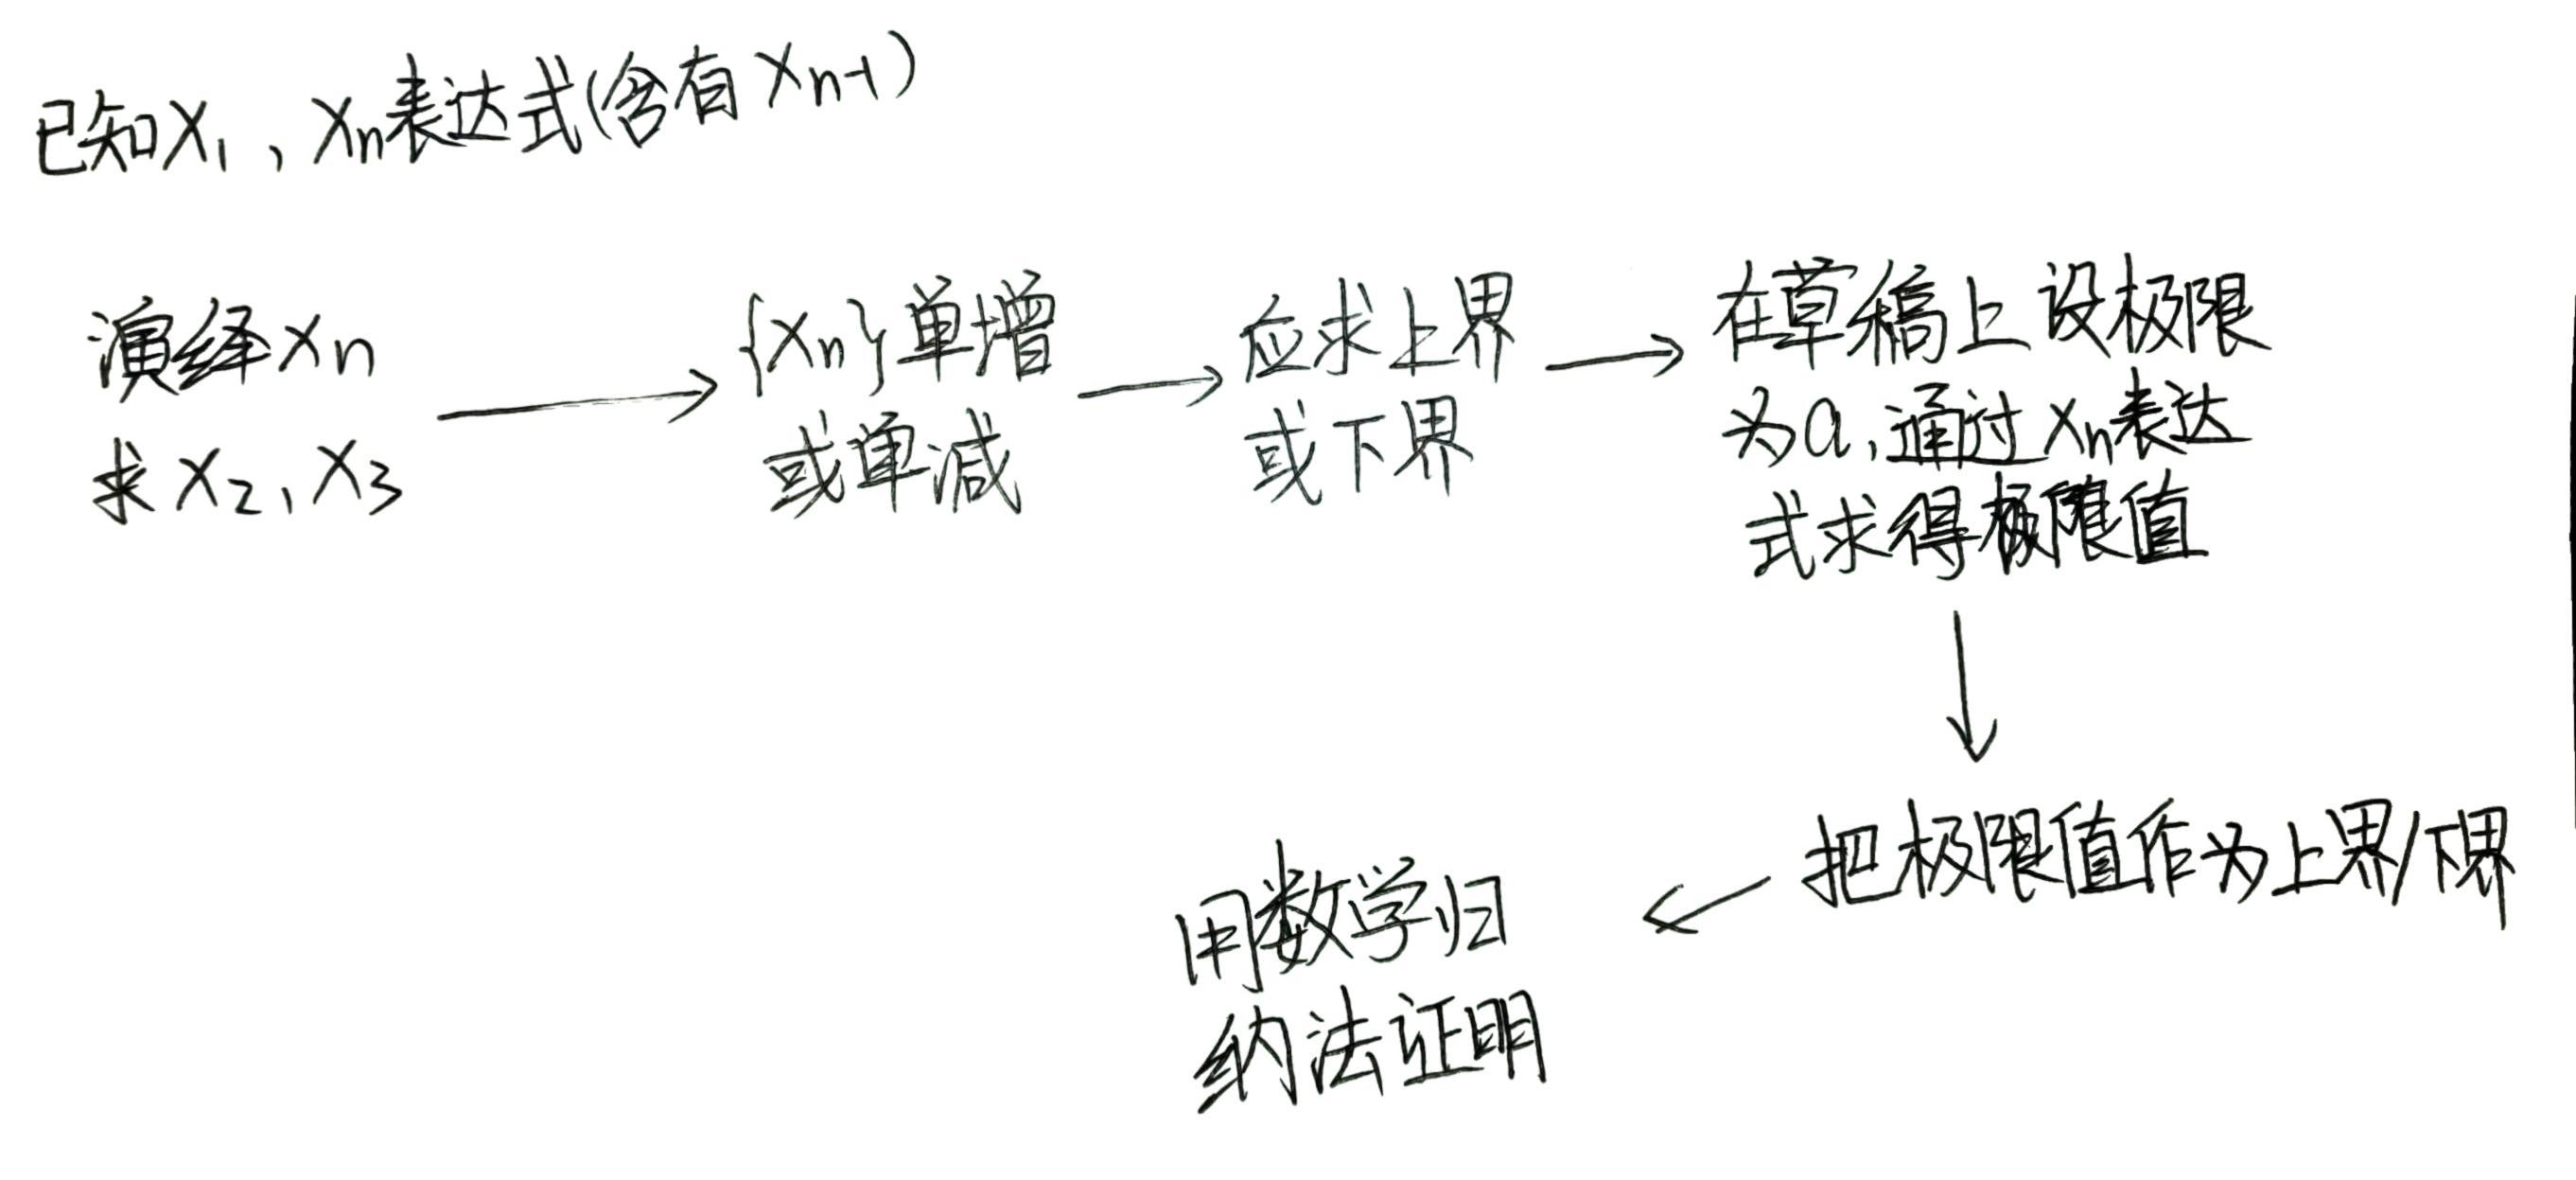 已知X₁，Xₙ表达式(含有Xₙ₋₁)
演绎Xₙ
求X₂、X₃
{Xₙ}单增
或单减
应求上界
或下界
在草稿上设极限
为a,通过Xₙ表达
式求得极限值
把极限值作为上界/下界
用数学归
纳法证明